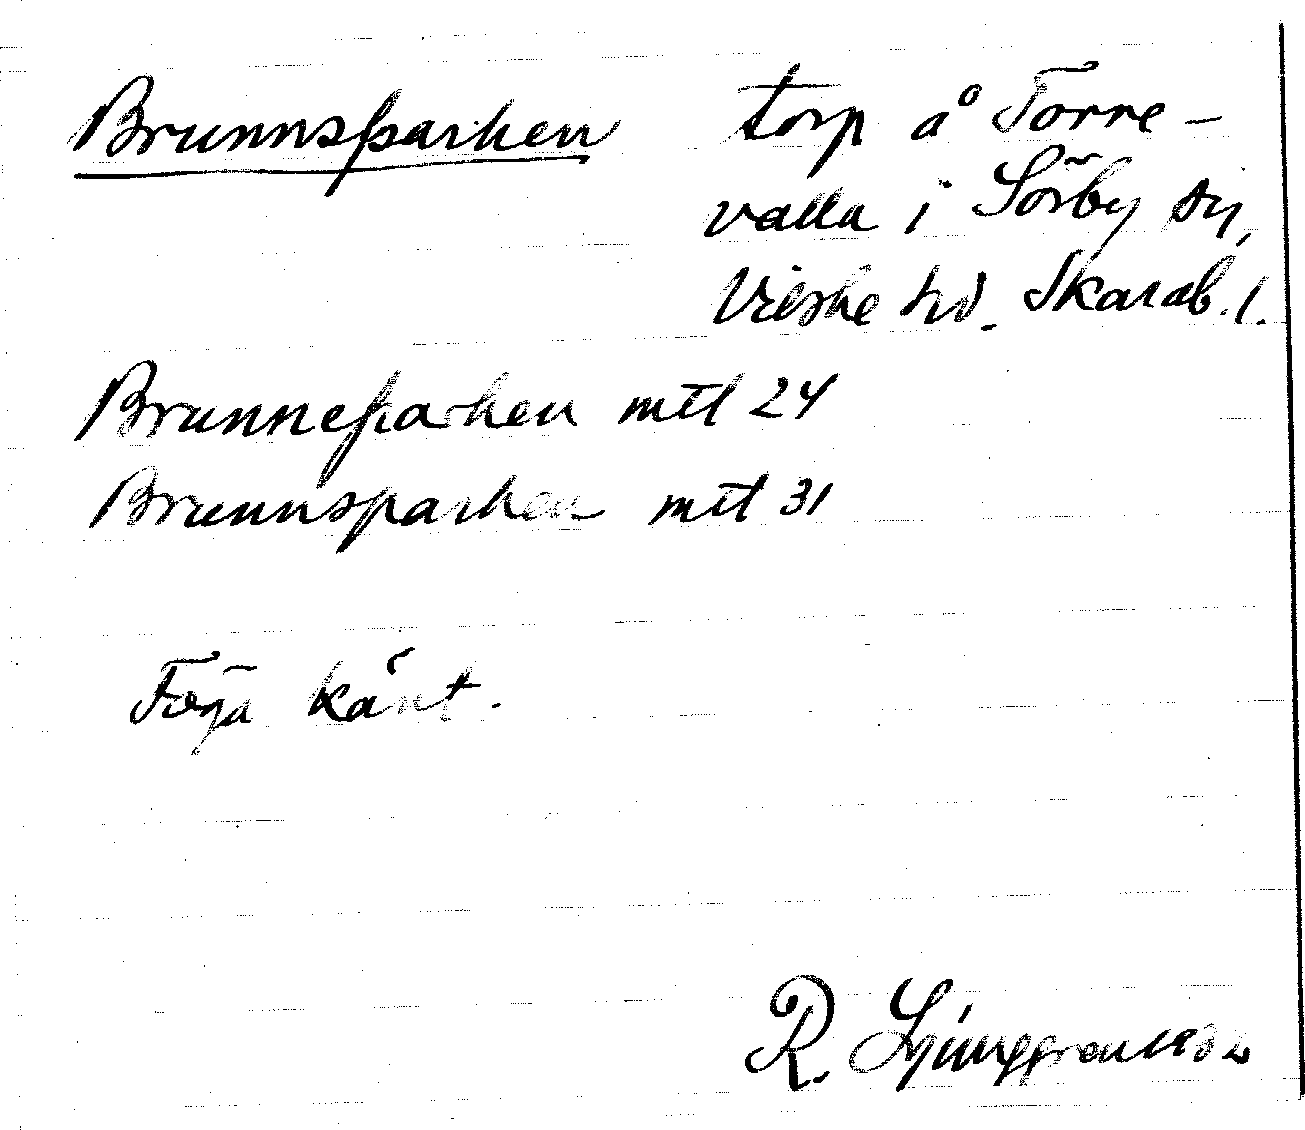 Brunnsparken torp å Torre-
valla i Sörby sn,
Vilske hd. Skarab. l.
Brunneparken mtl 24
Brunnsparken mtl 31
Föga känt.
R. Ljunggren 1932